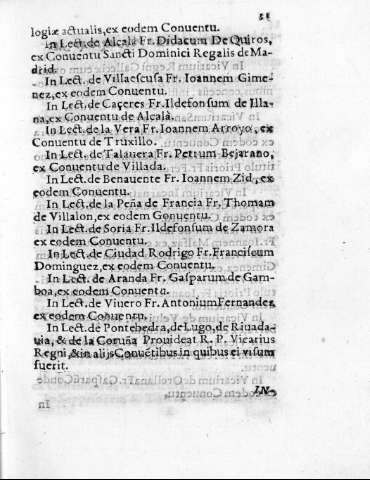 51
logiæ actualis, ex eodem Conuentu.
In Lect. de Alcalà Fr. Didacum De Quiros,
ex Conuentu Sancti Dominici Regalis de Ma-
drid.
In Lect. de Villaescusa Fr. Ioannem Gime-
nez, ex eodem Conuentu.
In Lect. de Caçeres Fr. Ildefonsum de Illa-
na, ex Conuentu de Alcalà.
In Lect. de la Vera Fr. Ioannem Arroyo, ex
Conuentu de Truxillo.
In Lect. de Talauera Fr. Petrum Bejarano,
ex Conuentu de Villada.
In Lect. de Benauente Fr. Ioannem Zid, ex
eodem Conuentu.
In Lect. de la Peña de Francia Fr. Thomam
de Villalon, ex eodem Conuentu.
In Lect. de Soria Fr. Ildefonsum de Zamora
ex eodem Conuentu.
In Lect. de Ciudad Rodrigo Fr. Franciscum
Dominguez, ex eodem Conuentu.
In Lect. de Aranda Fr. Gasparum de Gam-
boa, ex eodem Conuentu.
In Lect. de Viuero Fr. Antonium Fernandes
ex eodem Conuentu.
In Lect. de Pontebedra, de Lugo, de Riuada-
uia, & de la Coruña Prouideat R. P. Vicarius
Regni, & in alijs Conuẽtibus in quibus ei visum
fuerit.
IN